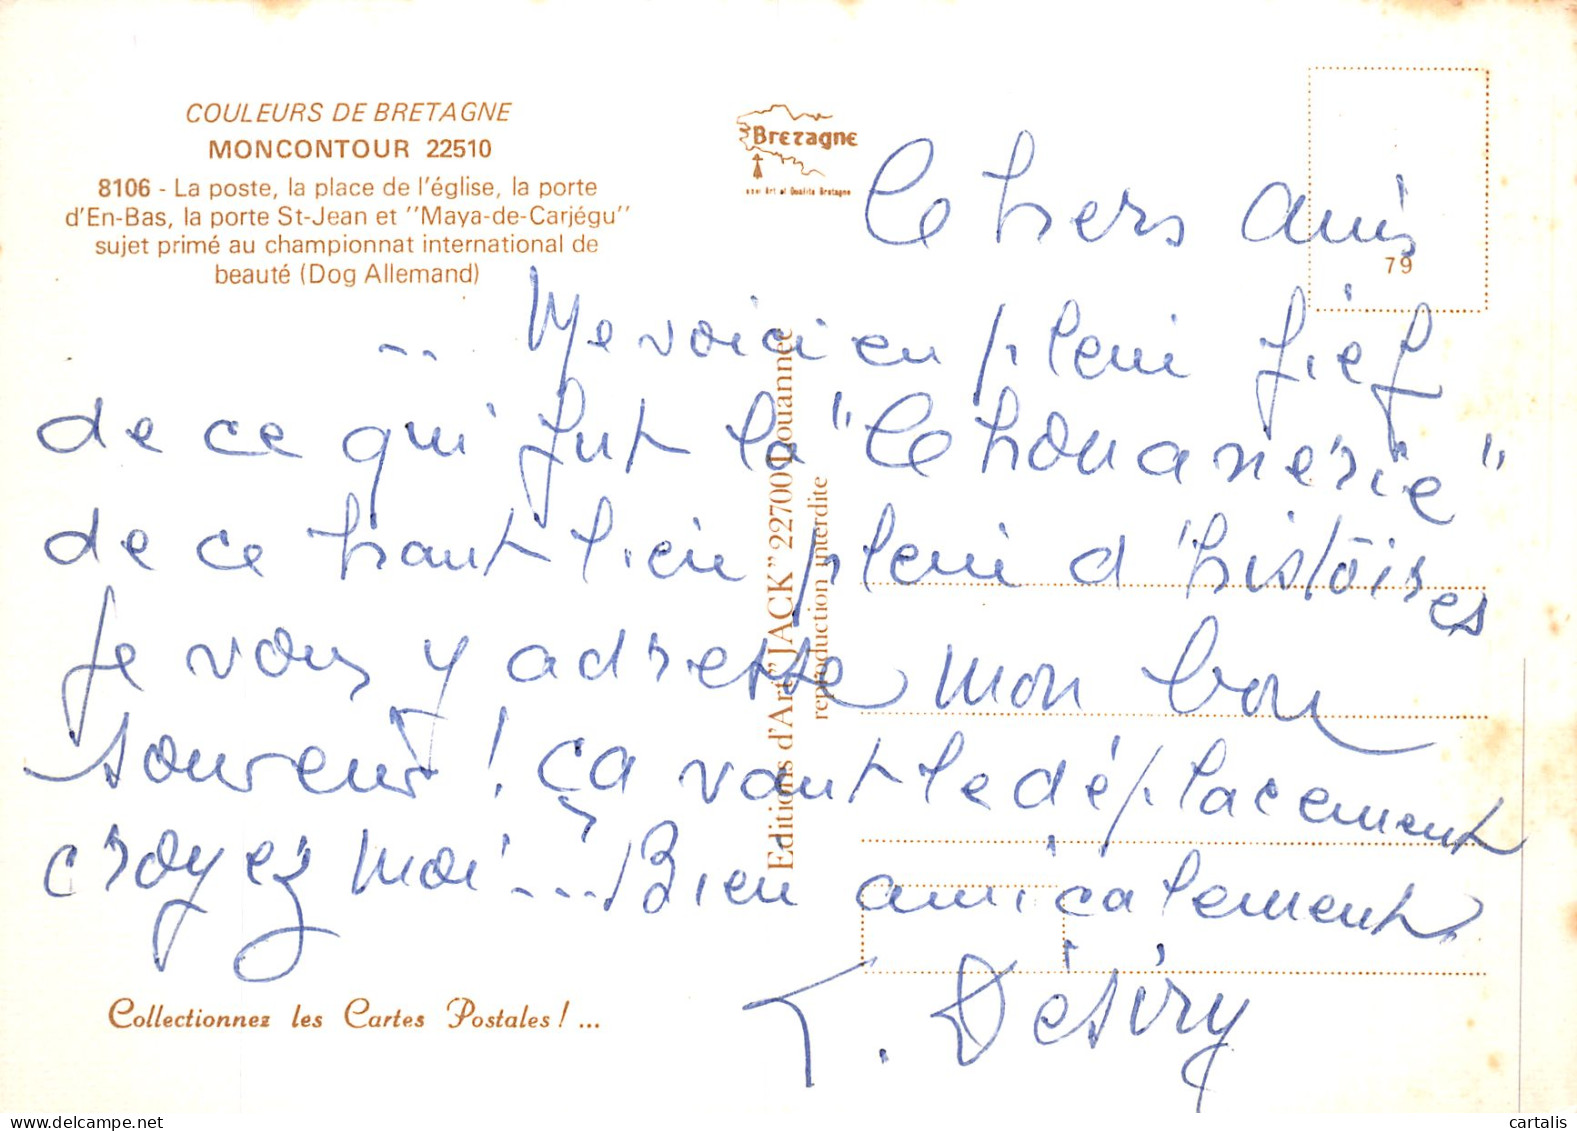 COULEURS DE BRETAGNE
MONCONTOUR 22510
8106 - La poste, la place de l'église, la porte
d'En-Bas, la porte St-Jean et "Maya-de-Carjégu"
sujet primé au championnat international de
beauté (Dog Allemand)
Bretagne
79
Chers amis
-- Me voici en plein fief
de ce qui fut la "Chouanerie"
de ce haut lieu plein d'histoires
je vous y adresse mon bon
souvenir ! ça vaut le déplacement
croyez moi ... Bien amicalement.
. Désiry
Editions d'Art "JACK" 22700 Louannec
reproduction interdite
Collectionnez les Cartes Postales ! ...
cartalis